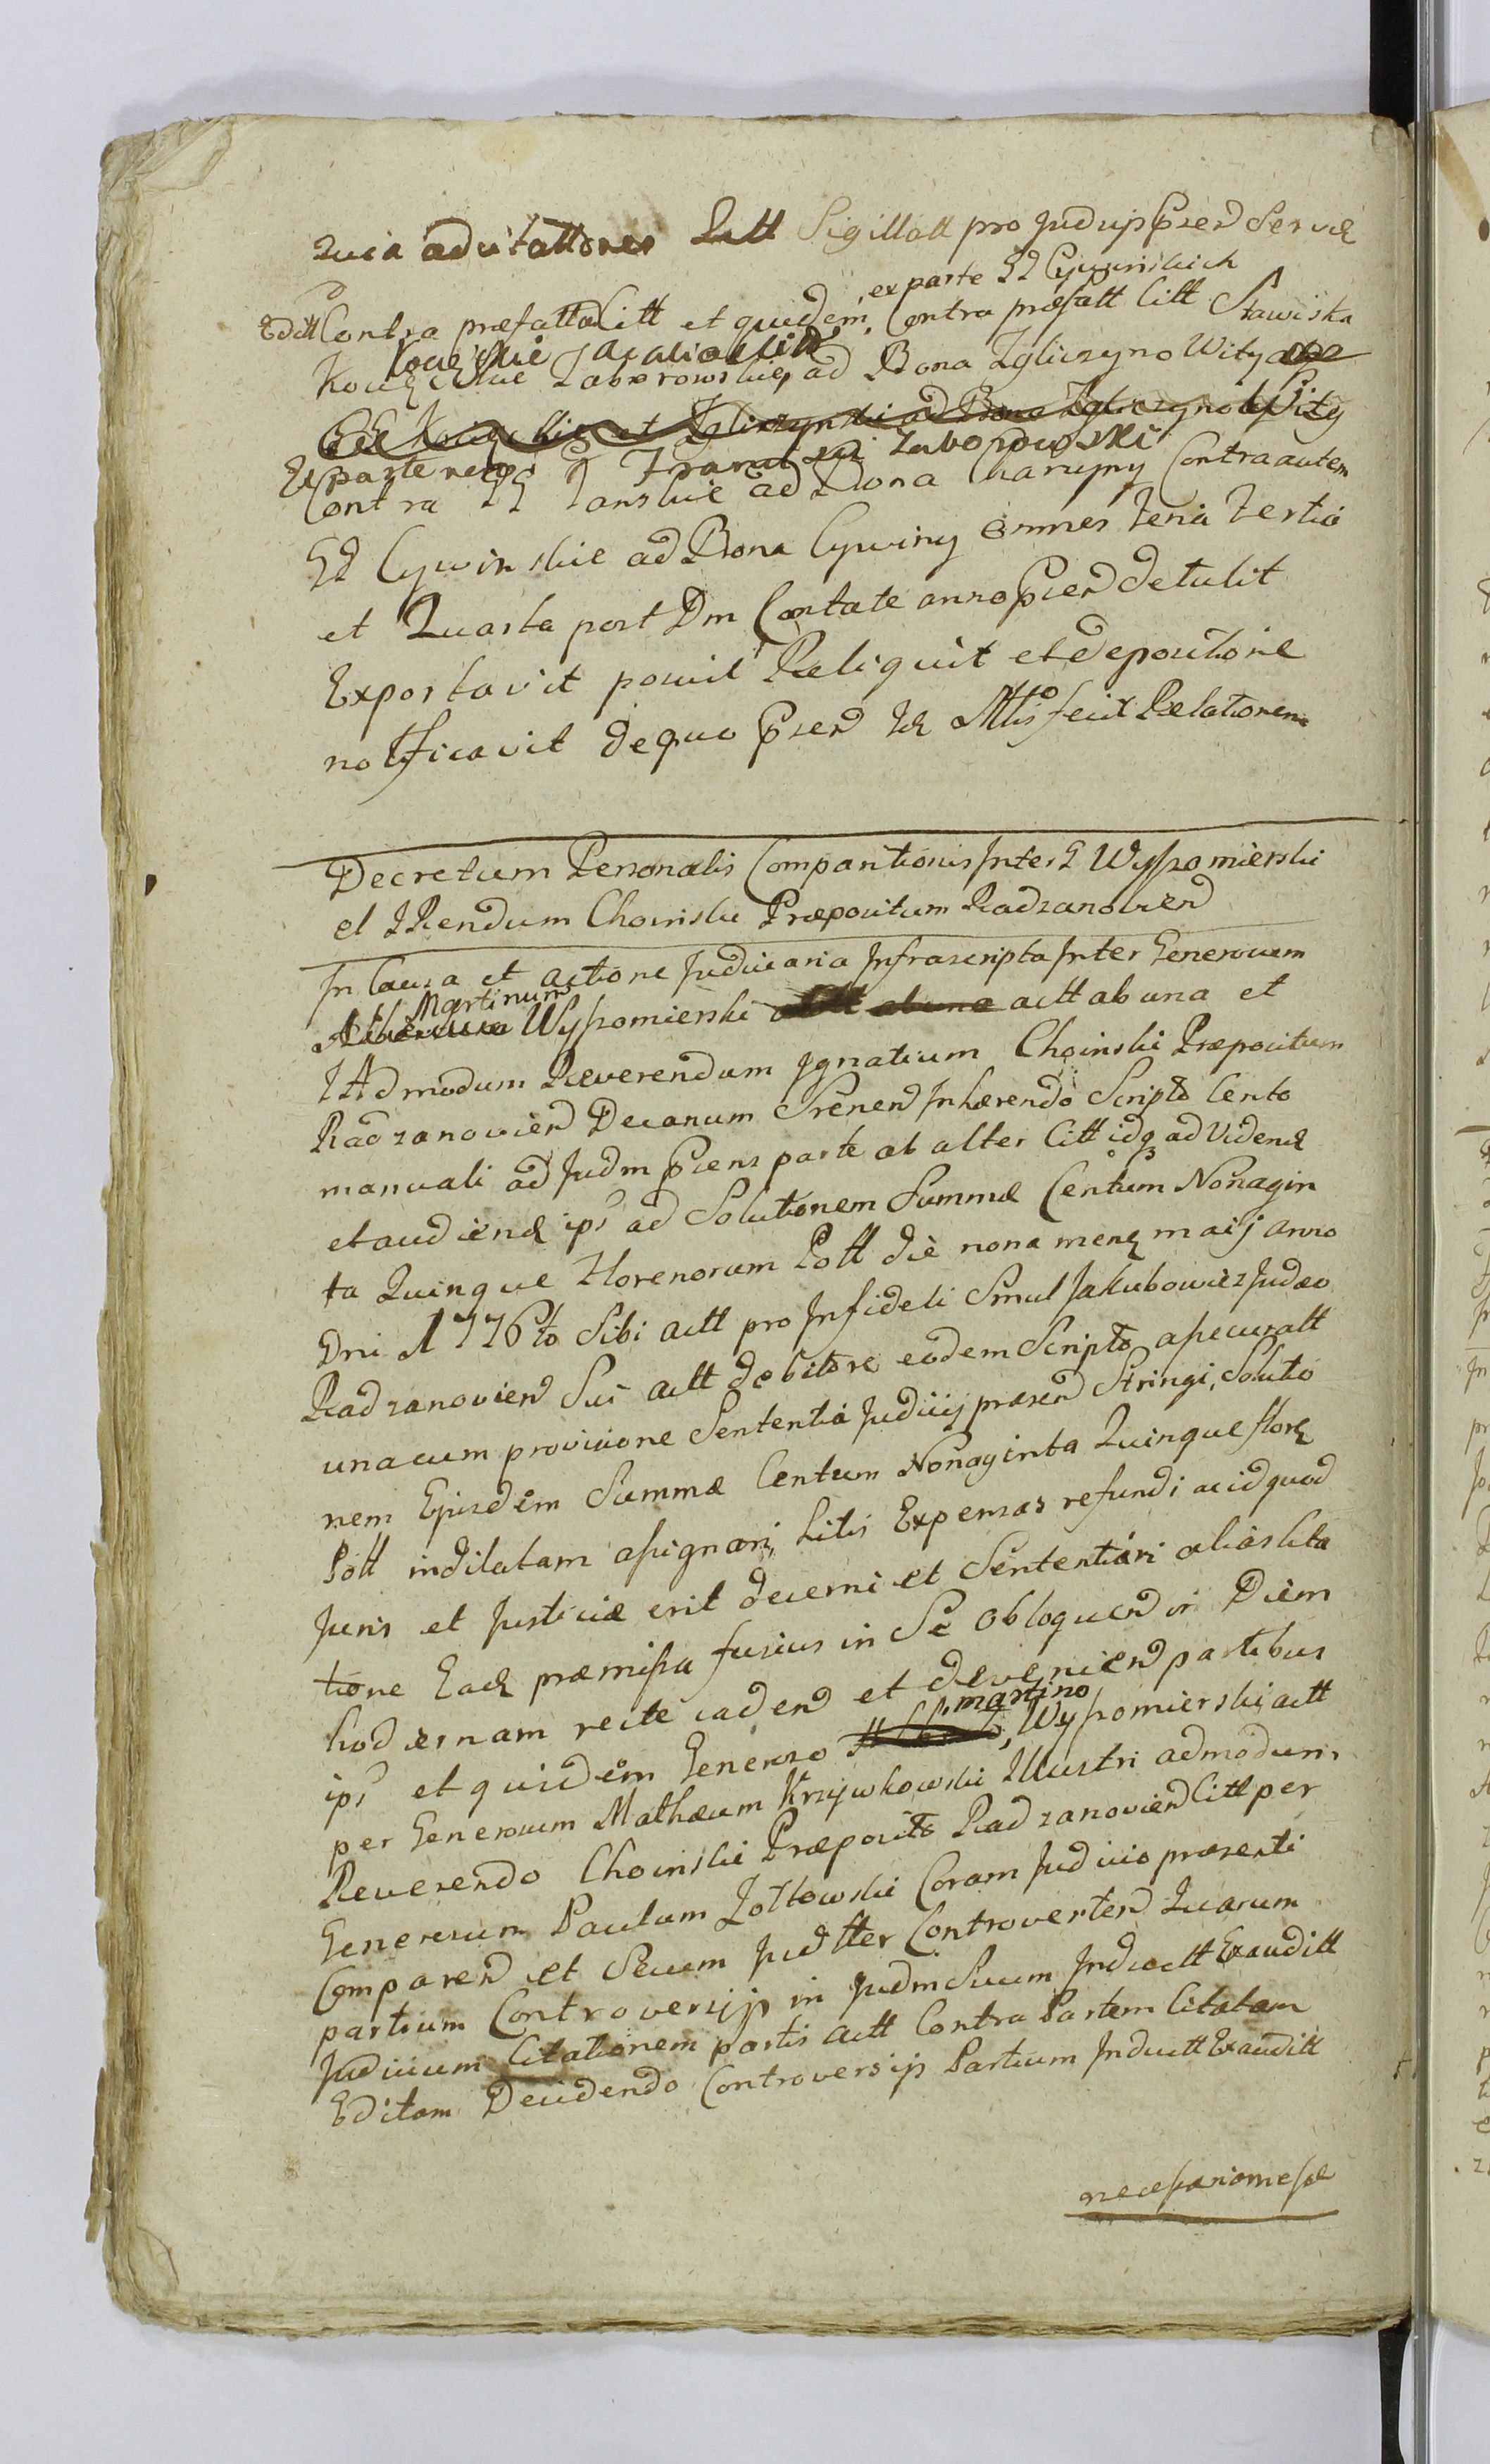 quia ad citattores Litt Sigillatt pro Judijs Prsen Servie
ex parte GG Cywinskich
Editt Contra præfattos Citt et quidem, Contra præfatt Citt Stawiska
Koci
Zaborowskie, ad Bona Zgliczyno Wity
et Zgliczynski ad Bona Zgliczyno Wity
Ex parte vero G Francisci Zaborowski
Contra GG Janskie ad Bona Charzyny Contra autem
GG Cywinskie ad Bona Cywiny omnes feria tertia
et Quarta post Dm Cantate anno Prsen detulit
Exportavit posuit Reliquit et depositione
notificavit de quo Prsen Id Mtis fecit Relationem
Decretum Personalis Comparitionis Inter G Wyszomierski
et IRendum Choinski Præpositum Radzanovien
In Causa et actione Judiciaria Infrascripta Inter Generosum
Martinum
Albertum Wyszomierski actt ab una actt ab una et
IAdmodum Reverendum Ignatium Choinski Præpositum
Radzanovien Decanum Srenen Inhærendo Scripto Certo
manuali ad Judm Prsens parte ab alter Citt idq ad Videnđ
et audienđ ips ad Solutionem Summæ Centum Nonagin
ta Quinque Florenorum Poll die nona mens maij anno
Dni 1776to Sibi actt pro Infideli Smul Jakubowicz Judæo
Radzanovien Sui actt debitore eodem Scripto assecuratt
una cum provisione Sententia Judicij præsen Stringi, Solutio
nem Ejusdem Summæ Centum Nonaginta Quinque flore
Poll indilatam assignari, Litis Expensas refundi acid quod
Juris et Justiciæ erit decerni et Sententiari alias Cita
tione Eađ præmissa fusius in Se obloquen in Diem
hodiernam recte caden et devenien partibus
martino
ips et quidem Generoso Alberto, Wyszomierski actt
per Generosum Mathæum Krzywkowski Illustri admodum
Reverendo Choinski Præposito Radzanovien Citt per
Generosum Paulum Zołtowski Coram Judicio præsenti
Comparen et Secum Judtter Controverten Quarum
partium Controversijs in Judm Suum Inductt Exauditt
Judicium Citationem partis actt Contra Partem Citatam
Editam Decidendo Controversijs Partium Inductt Exauditt
necessariam esse